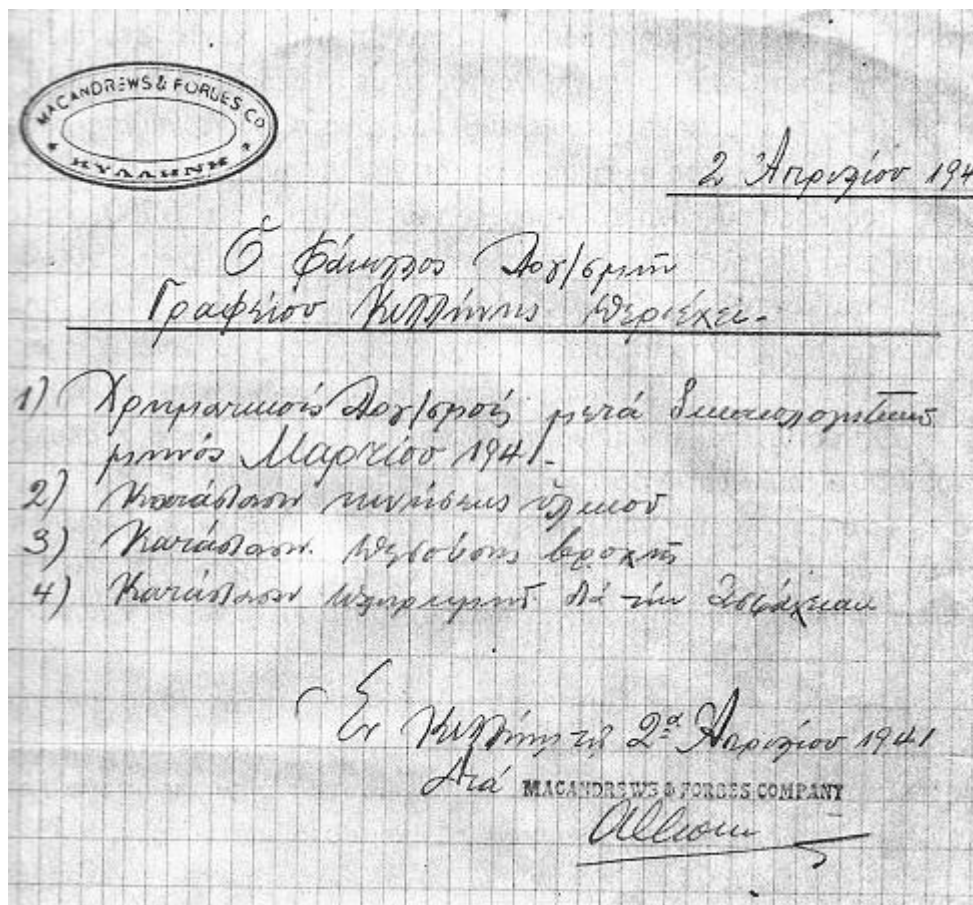 MACANDREWS & FORBES CO
ΚΥΛΛΗΝΗ
2 Ἀπριλίου 194
Ὁ Φάκελλος Λογ/σμῶν
Γραφείου Κυλλήνης περιέχει.
1) Χρηματικούς Λογ/σμούς μετά δικαιολογητικῶν
μηνός Μαρτίου 1941.
2) Κατάστασιν κινήσεως ὑλικοῦ
3) Κατάστασιν πεσούσης βροχῆς
4) Κατάστασιν διά τήν ἀσφάλειαν
Ἐν Κυλλήνῃ τῇ 2ᾳ Ἀπριλίου 1941
Διά MACANDREWS & FORBES COMPANY